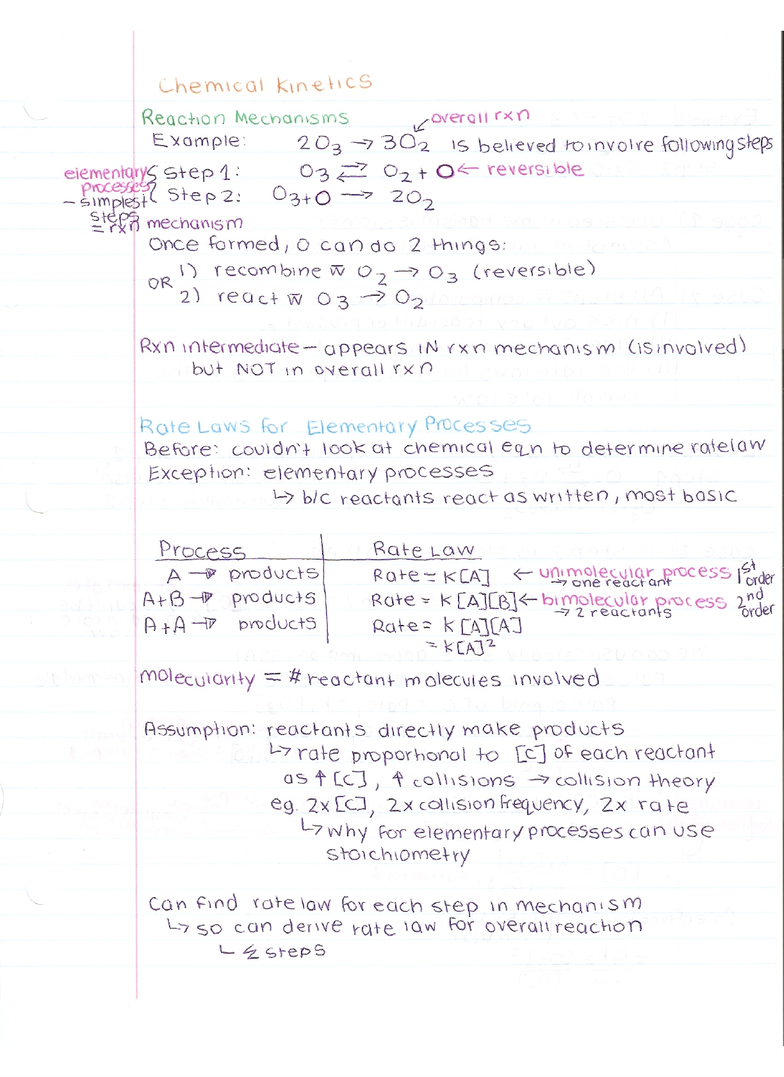 Chemical Kinetics
Reaction Mechanisms
overall rxn
Example: 2O₃ → 3O₂ is believed to involve following steps
elementary processes - simplest steps = rxn mechanism
Step 1: O₃ ⇄ O₂ + O ← reversible
Step 2: O₃ + O → 2O₂
Once formed, O can do 2 things:
1) recombine w̄ O₂ → O₃ (reversible)
OR
2) react w̄ O₃ → O₂
Rxn intermediate – appears IN rxn mechanism (is involved)
but NOT in overall rxn
Rate Laws for Elementary Processes
Before: couldn't look at chemical eqn to determine rate law
Exception: elementary processes
↳ b/c reactants react as written, most basic
Process Rate Law
A → products Rate = K[A] ← unimolecular process 1st order
→ one reactant
A+B → products Rate = K[A][B] ← bimolecular process 2nd order
→ 2 reactants
A+A → products Rate = K[A][A]
= K[A]²
molecularity = # reactant molecules involved
Assumption: reactants directly make products
↳ rate proportional to [C] of each reactant
as ↑[C], ↑ collisions → collision theory
eg. 2x[C], 2x collision frequency, 2x rate
↳ why for elementary processes can use
stoichiometry
Can find rate law for each step in mechanism
↳ so can derive rate law for overall reaction
↳ Σ steps